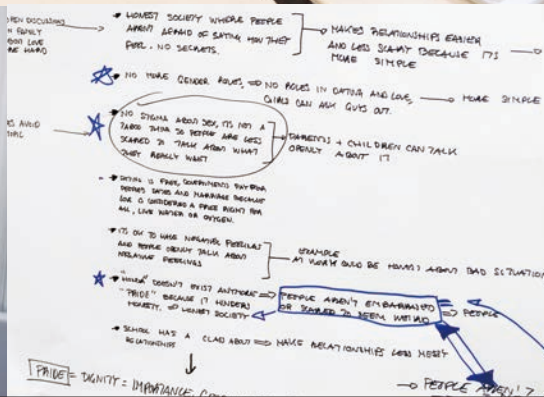 OPEN DISCUSSIONS
FAMILY
LOVE
HARD
→ HONEST SOCIETY WHERE PEOPLE
AREN'T AFRAID OF SAYING HOW THEY
FEEL. NO SECRETS.
→ MAKES RELATIONSHIPS EASIER
AND LESS SCARY BECAUSE ITS
MORE SIMPLE
→ NO MORE GENDER ROLES, ⇒ NO ROLES IN DATING AND LOVE,
GIRLS CAN ASK GUYS OUT.
→ MORE SIMPLE
AVOID
→ NO STIGMA ABOUT SEX, ITS NOT A
TABOO THING SO PEOPLE ARE LESS
SCARED TO TALK ABOUT WHAT
THEY REALLY WANT
→ PARENTS + CHILDREN CAN TALK
OPENLY ABOUT IT
→ DATING IS FREE, GOVERNMENTS PAY FOR
DATES AND MARRIAGE BECAUSE
LOVE IS CONSIDERED A FREE RIGHT FOR
ALL, LIKE WATER OR OXYGEN.
→ ITS OK TO HAVE NEGATIVE FEELINGS
AND PEOPLE OPENLY TALK ABOUT
NEGATIVE FEELINGS
EXAMPLE
HONEST ABOUT BAD SITUATION
→ "HONOR" DOESN'T EXIST ANYMORE
"PRIDE" BECAUSE IT HINDERS
HONESTY. ⇒ HONEST SOCIETY
⇒ PEOPLE AREN'T EMBARRASSED
OR SCARED TO SEEM WEIRD
⇒ PEOPLE
→ SCHOOL HAS A CLASS ABOUT
RELATIONSHIPS
⇒ MAKE RELATIONSHIPS LESS MESSY
PRIDE = DIGNITY = IMPORTANCE,
→ PEOPLE AREN'T